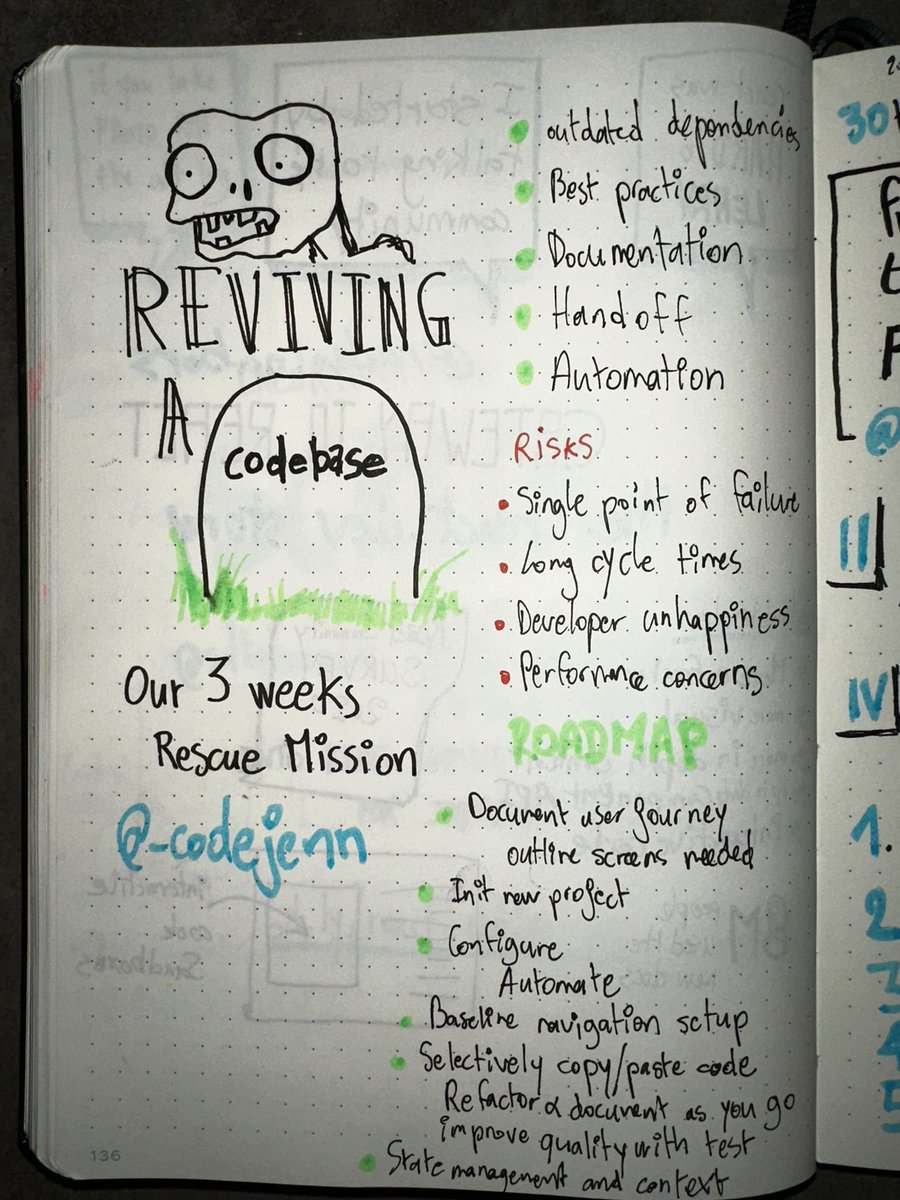 REVIVING
A
codebase
Our 3 weeks
Rescue Mission
@-codejenn
outdated dependencies
Best practices
Documentation
Handoff
Automation
Risks
Single point of failure
Long cycle times
Developer unhappiness
Performance concerns
ROADMAP
Document user journey
outline screens needed
Init new project
Configure
Automate
Baseline navigation setup
Selectively copy/paste code
Refactor & document as you go
improve quality with test
State management and context
136
30
@
II
IV
1.
2
3
4
5